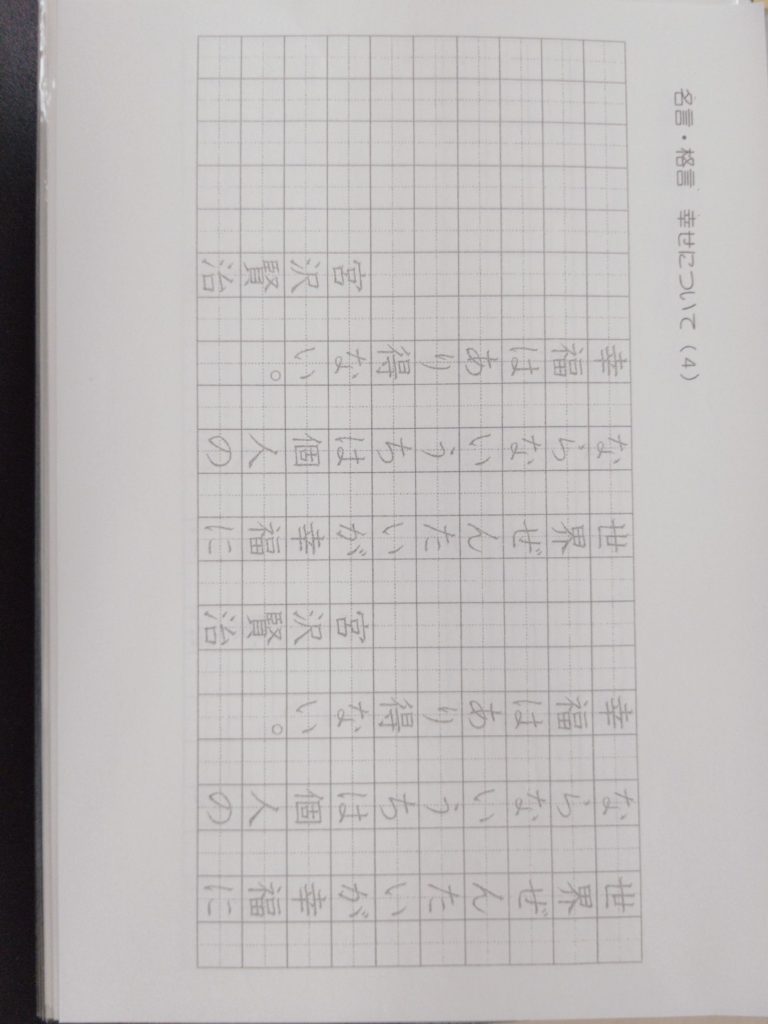 名言・格言　幸せについて（4）
世界ぜんたいが幸福に
ならないうちは個人の
幸福はあり得ない。
宮沢賢治
世界ぜんたいが幸福に
ならないうちは個人の
幸福はあり得ない。
宮沢賢治